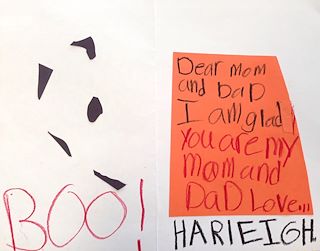 BOO!
Dear mom
and DaD
I am glad
you are my
mom and
DaD Love...
HARlEIGH